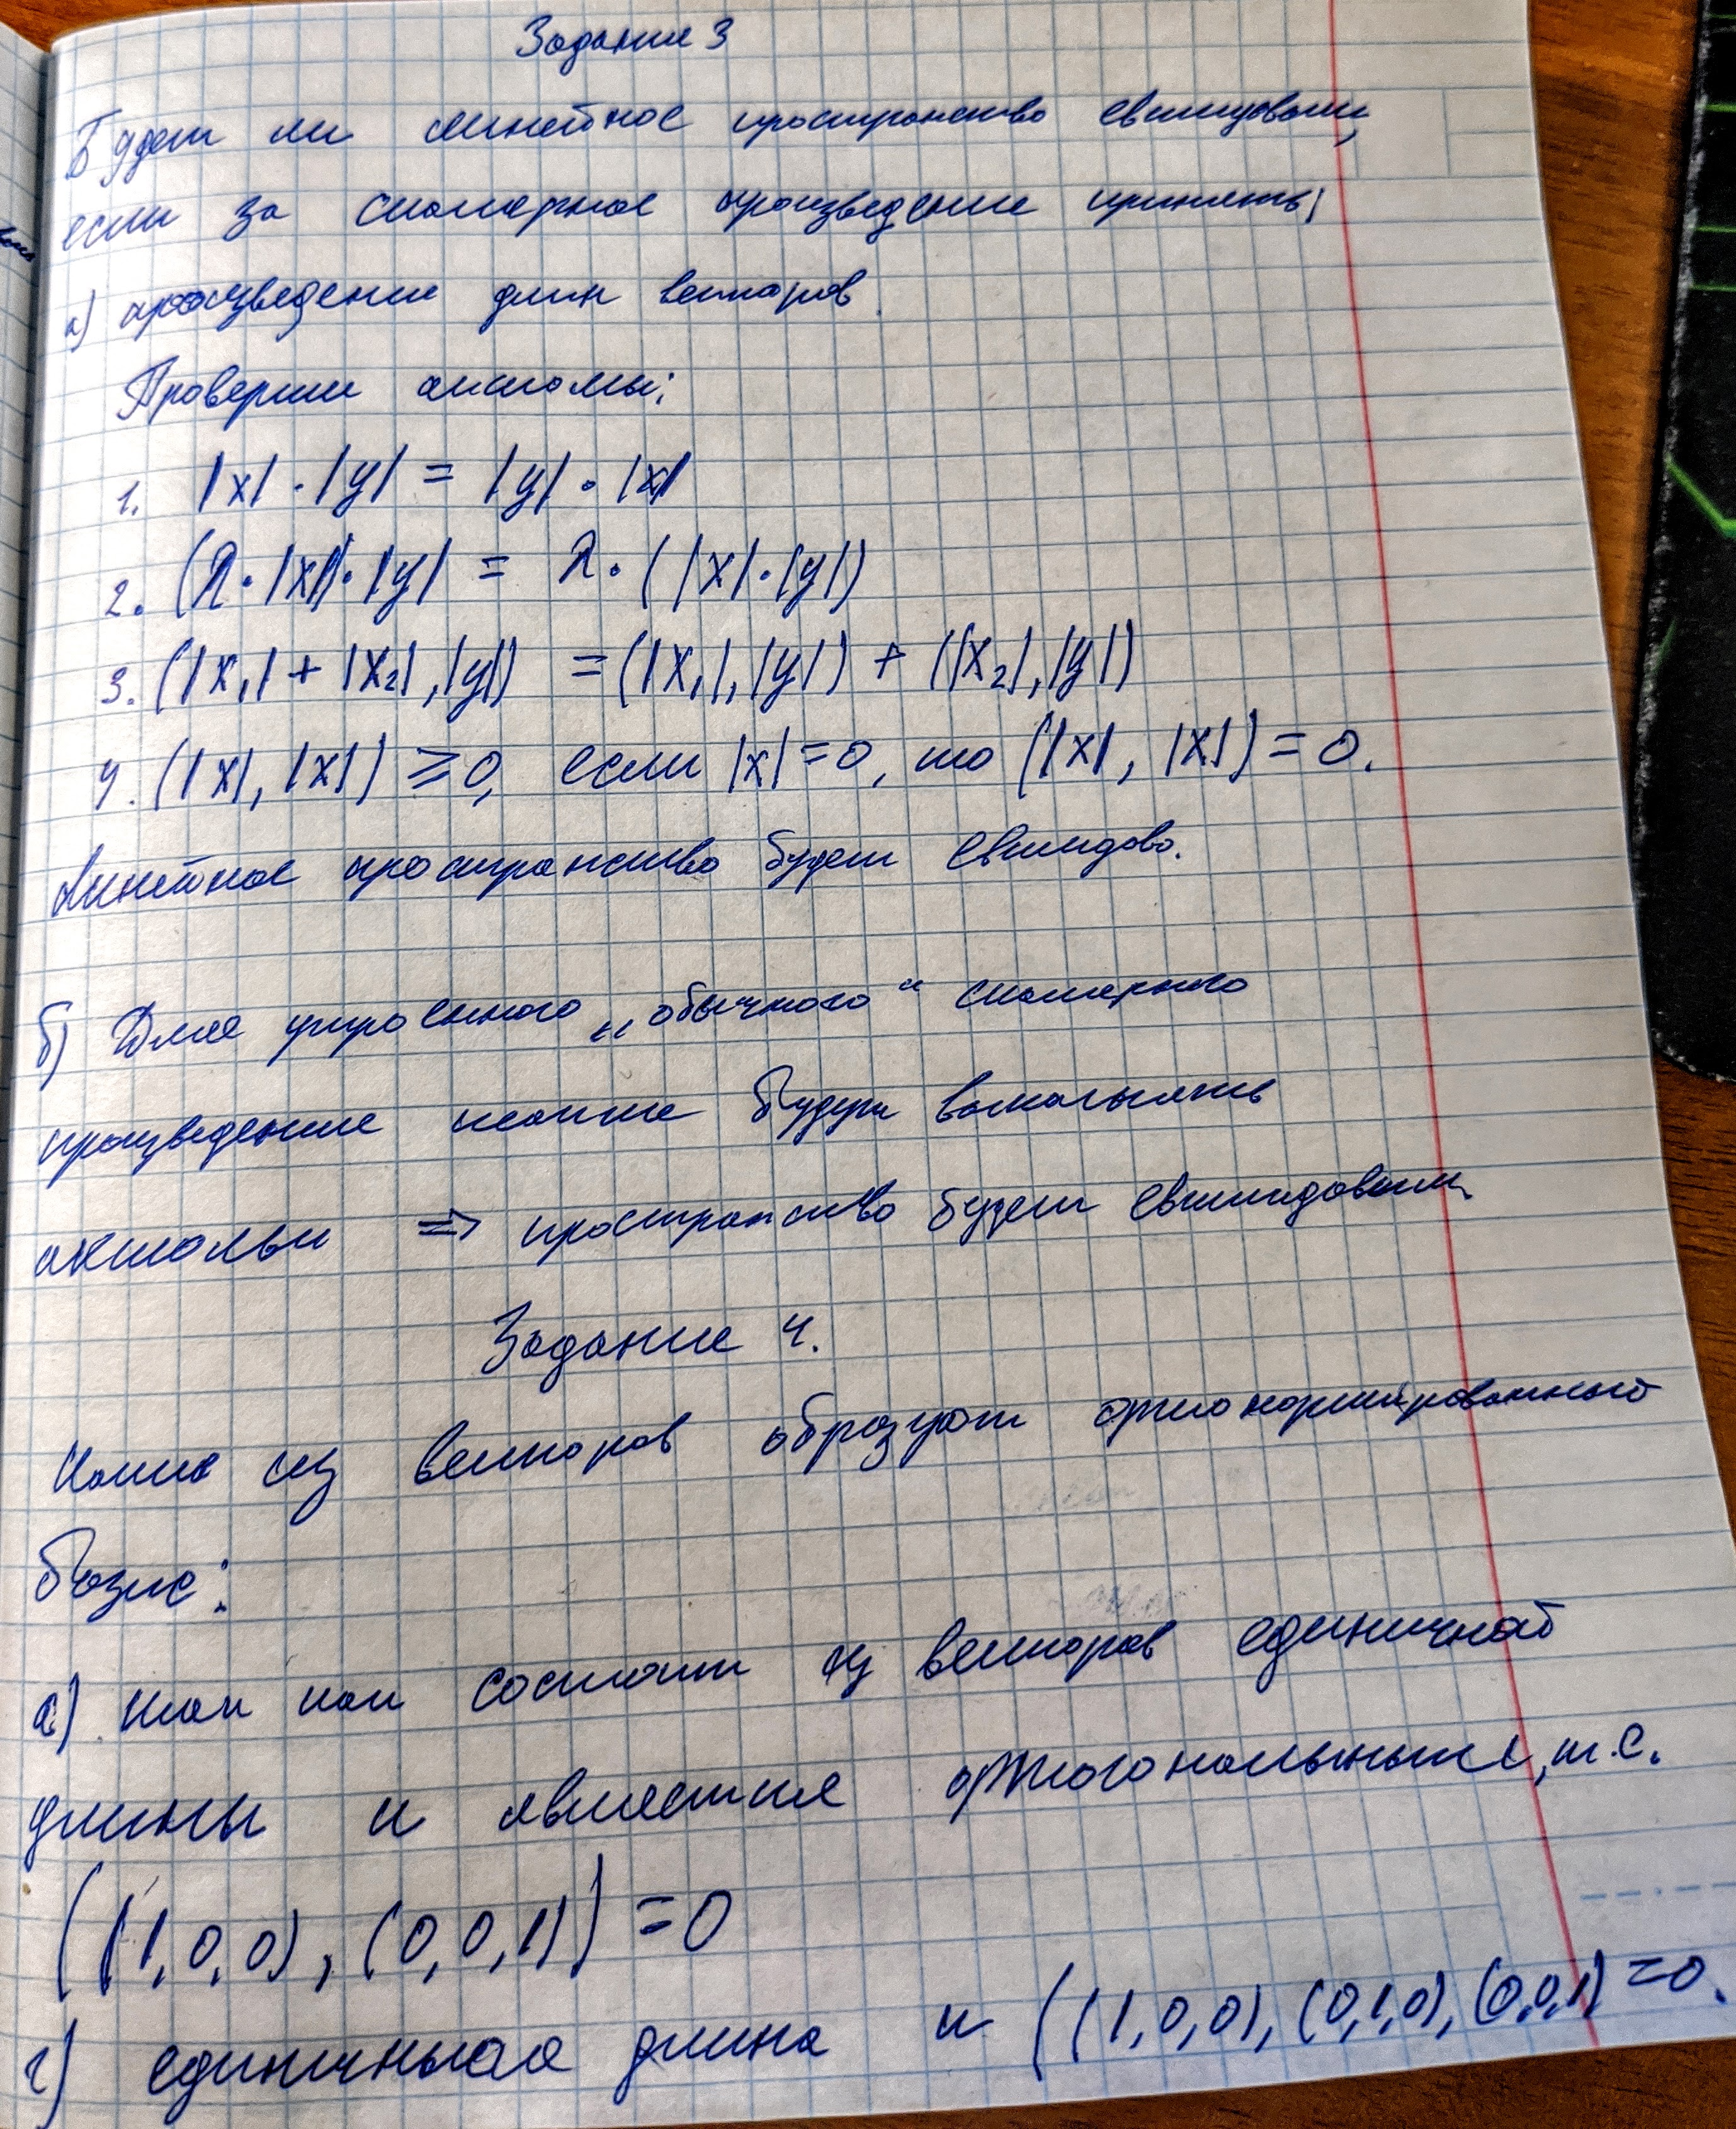 Задание 3
Будет ли линейное пространство евклидовым,
если за скалярное произведение принять:
а) произведение длин векторов.
Проверим аксиомы:
1. |x| · |y| = |y| · |x|
2. (λ · |x|) · |y| = λ · (|x| · |y|)
3. (|x₁| + |x₂|, |y|) = (|x₁|, |y|) + (|x₂|, |y|)
4. (|x|, |x|) ≥ 0, если |x| = 0, то (|x|, |x|) = 0.
Линейное пространство будет евклидово.
б) Для утроенного „обычного“ скалярного
произведение также будут выполнять
аксиомы => пространство будет евклидовым
Задание 4.
Какие из векторов образуют ортонормированного
базис:
а) так как состоит из векторов единичной
длины и является ортогональными, т.е.
((1,0,0), (0,0,1)) = 0
г) единичная длина и ((1,0,0), (0,1,0), (0,0,1) = 0.